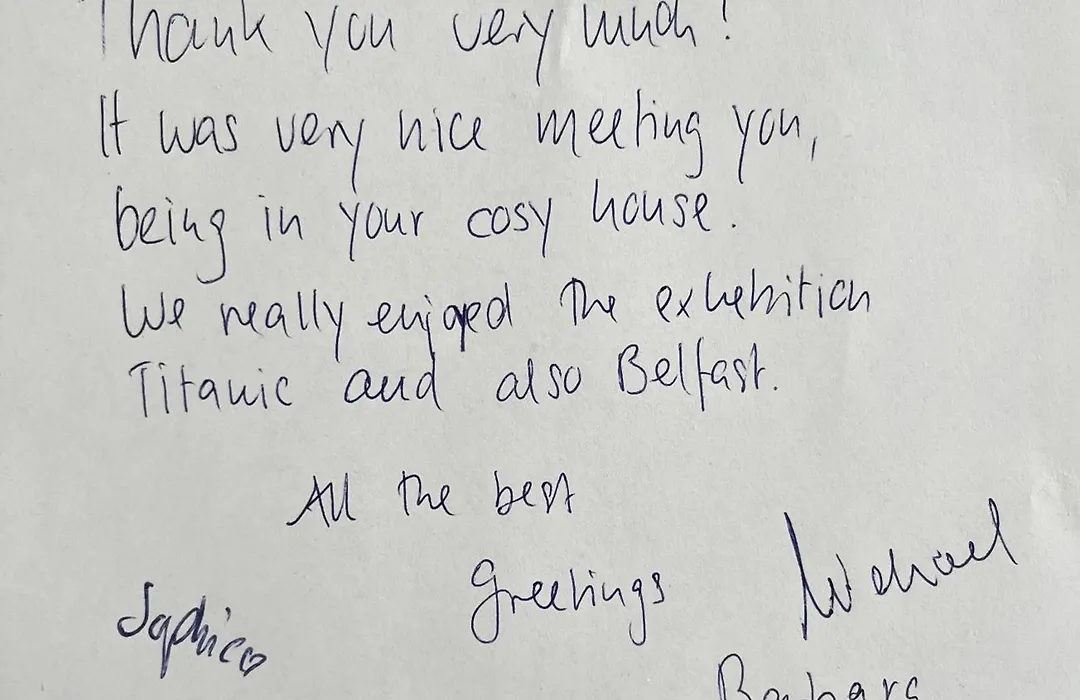 Thank you very much!
It was very nice meeting you,
being in your cosy house.
We really enjoyed the exhebition
Titanic and also Belfast.
All the best
Greetings
Michael
Sophie
Barbara